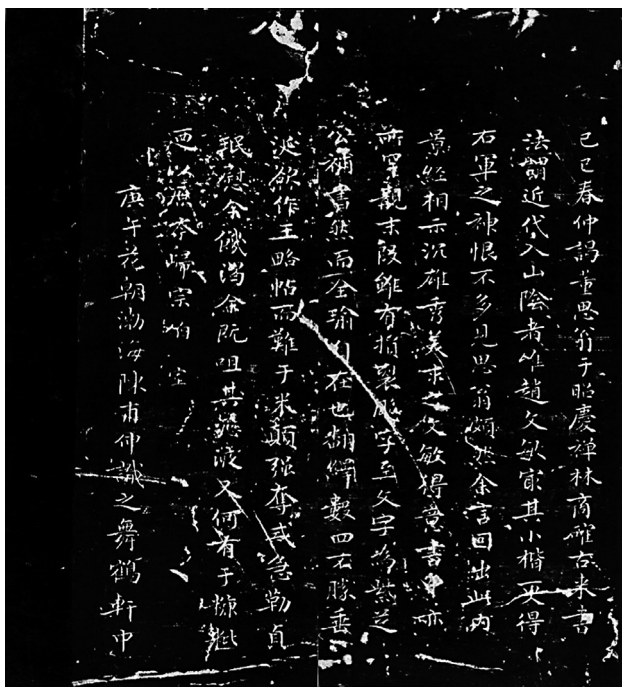 己巳春仲謁董思翁于昭慶禪林商確古來書
法謂近代入山陰者唯趙文敏家其小楷更得
右軍之神恨不多見思翁頗然余言因出此内
景經相示沉雄秀美求之文敏得意書中亦
所罕觀末段雖有損裂服字至文字為紫芝
公補書然而全瑜自在也翻繹數四不勝垂
涎欲作王略帖而難于米顛強奪或急勒貞
珉慰余饑渴余既咀其 液又何有于糠粃
迺以原本歸宗伯
庚午花朝渤海陳甫仲識之舞鶴軒中